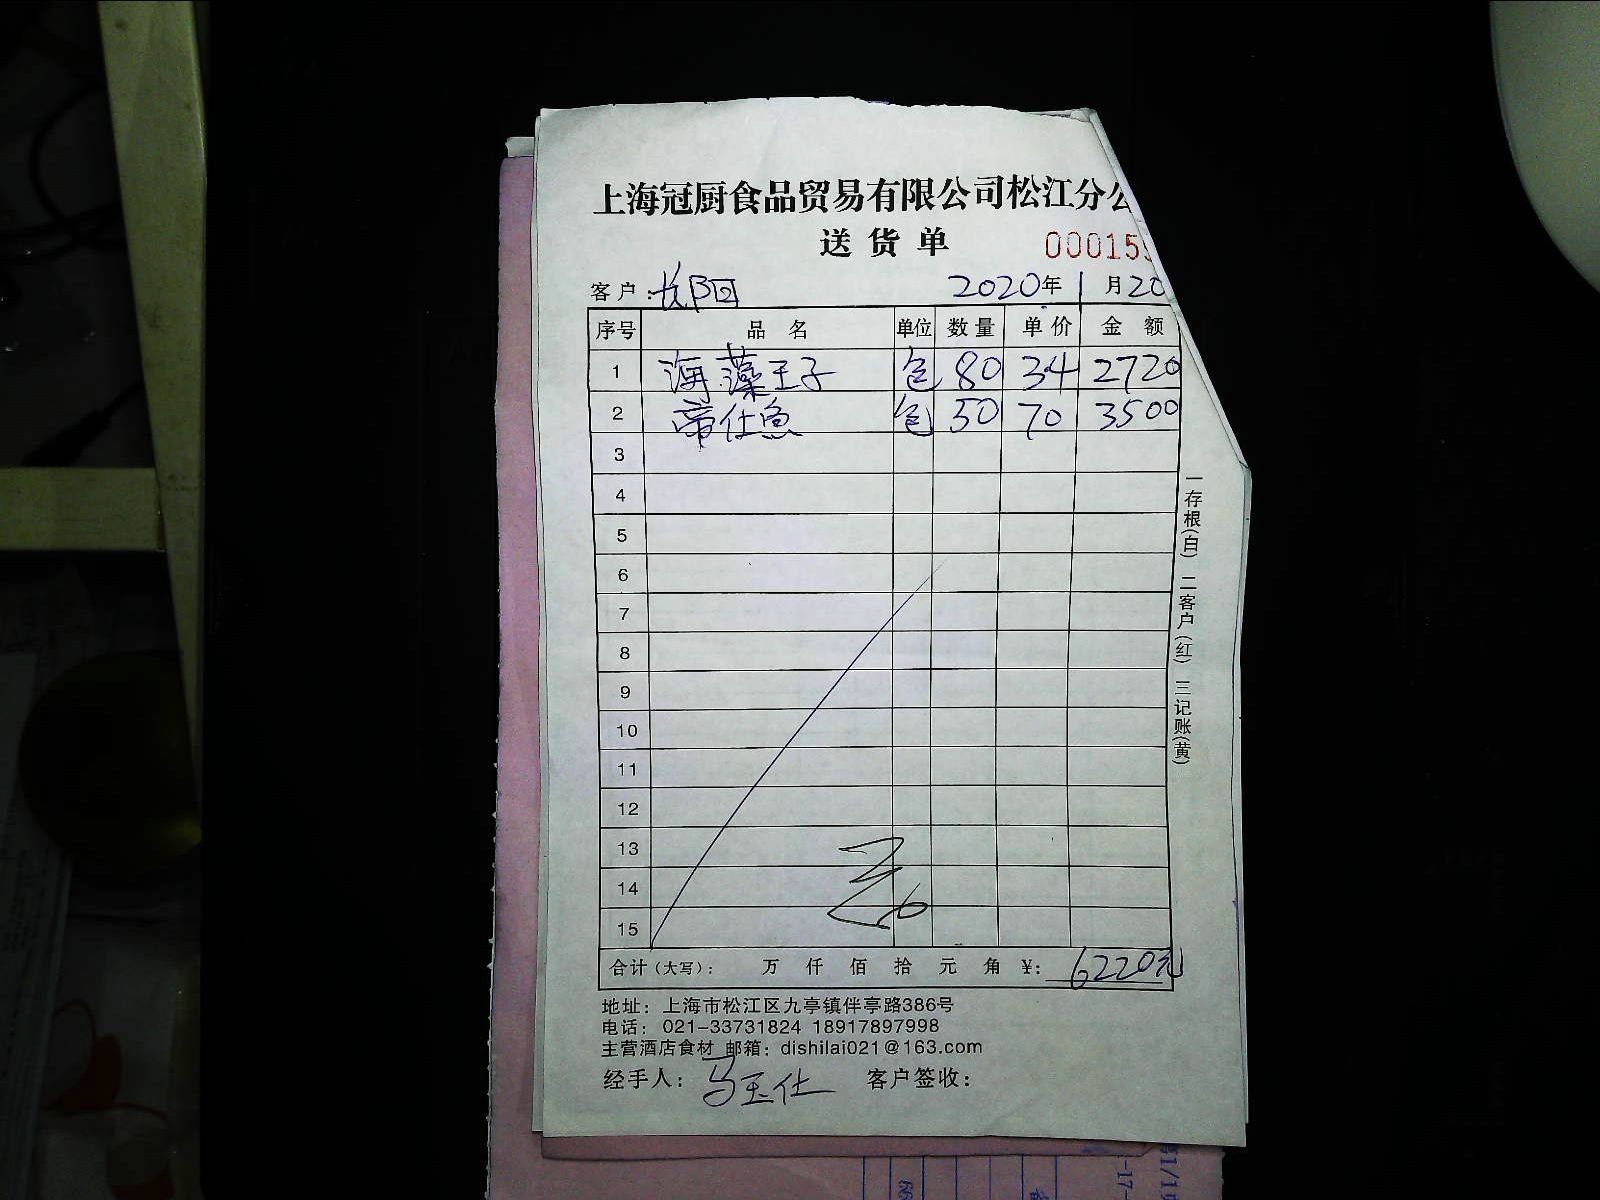 上海冠厨食品贸易有限公司松江分公
送货单 00015
客户: 长阳 2020年1月20
序号 品名 单位 数量 单价 金额
1 海藻王子 包 80 34 2720
2 帝仕鱼 包 50 70 3500
3
4
5
6
7
8
9
10
11
12
13
14
15
合计(大写): 万 仟 佰 拾 元 角 ¥: 6220元
地址: 上海市松江区九亭镇伴亭路386号
电话: 021-33731824 18917897998
主营酒店食材 邮箱: dishilai021@163.com
经手人: 马玉仕 客户签收:
一存根(白) 二客户(红) 三记账(黄)